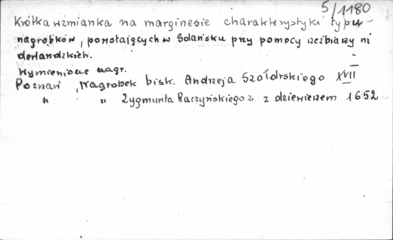 5/1180
Krótka wzmianka na marginesie charakterystyki typu
nagrobków, powstających w Gdańsku przy pomocy rzeźbiarzy ni
derlandzkich.
Wymienione nagr.
Poznań, Nagrobek bisk. Andrzeja Szołdrskiego XVII
" " Zygmunta Raczyńskiego z 1652